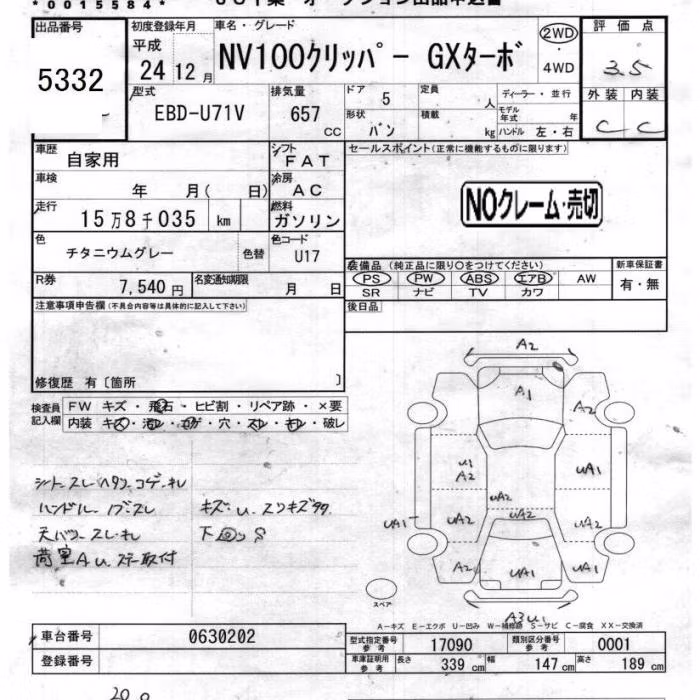 *0015584*
出品番号 初度登録年月 車名・グレード 評価点
5332 平成 24 12月 NV100クリッパー GXターボ 2WD・4WD 3.5
型式 排気量 ドア 5 定員 人 ディーラー・並行 外装 内装
EBD-U71V 657 cc 形状 バン 積載 kg モデル年式 年 ハンドル 左・右 C C
車歴 自家用 シフト FAT セールスポイント(正常に機能するものに限ります)
車検 年 月( 日) 冷房 AC
走行 15万8千035 km 燃料 ガソリン NOクレーム・売切
色 チタニウムグレー 色替 色コード U17
装備品(純正品に限り○をつけてください) 新車保証書
R券 7,540円 名変通知期限 月 日 PS PW ABS エアB AW 有・無
SR ナビ TV カワ
注意事項申告欄(不具合内容等は具体的に記入して下さい) 後日品
修復歴 有〔箇所 〕
検査員記入欄 FW キズ・飛石・ヒビ割・リペア跡・×要
内装 キズ・汚レ・コゲ・穴・スレ・キレ・破レ
シートスレ ヘタリ コゲ・キレ
ハンドル・ノブスレ キズ・u・スリキズ多
天バリ スレ・キレ 下回りS
荷室Au ステー取付
A2
A1
A2
u1
A2
uA1
uA2
uA1
uA2
uA2
uA2
A2
uA1
uA1
A3u1
スペア
A-キズ E-エクボ U-凹み W-補修跡 S-サビ C-腐食 XX-交換済
車台番号 0630202 型式指定番号 参考 17090 類別区分番号 参考 0001
登録番号 車庫証明用 参考 長さ 339cm 幅 147cm 高さ 189cm